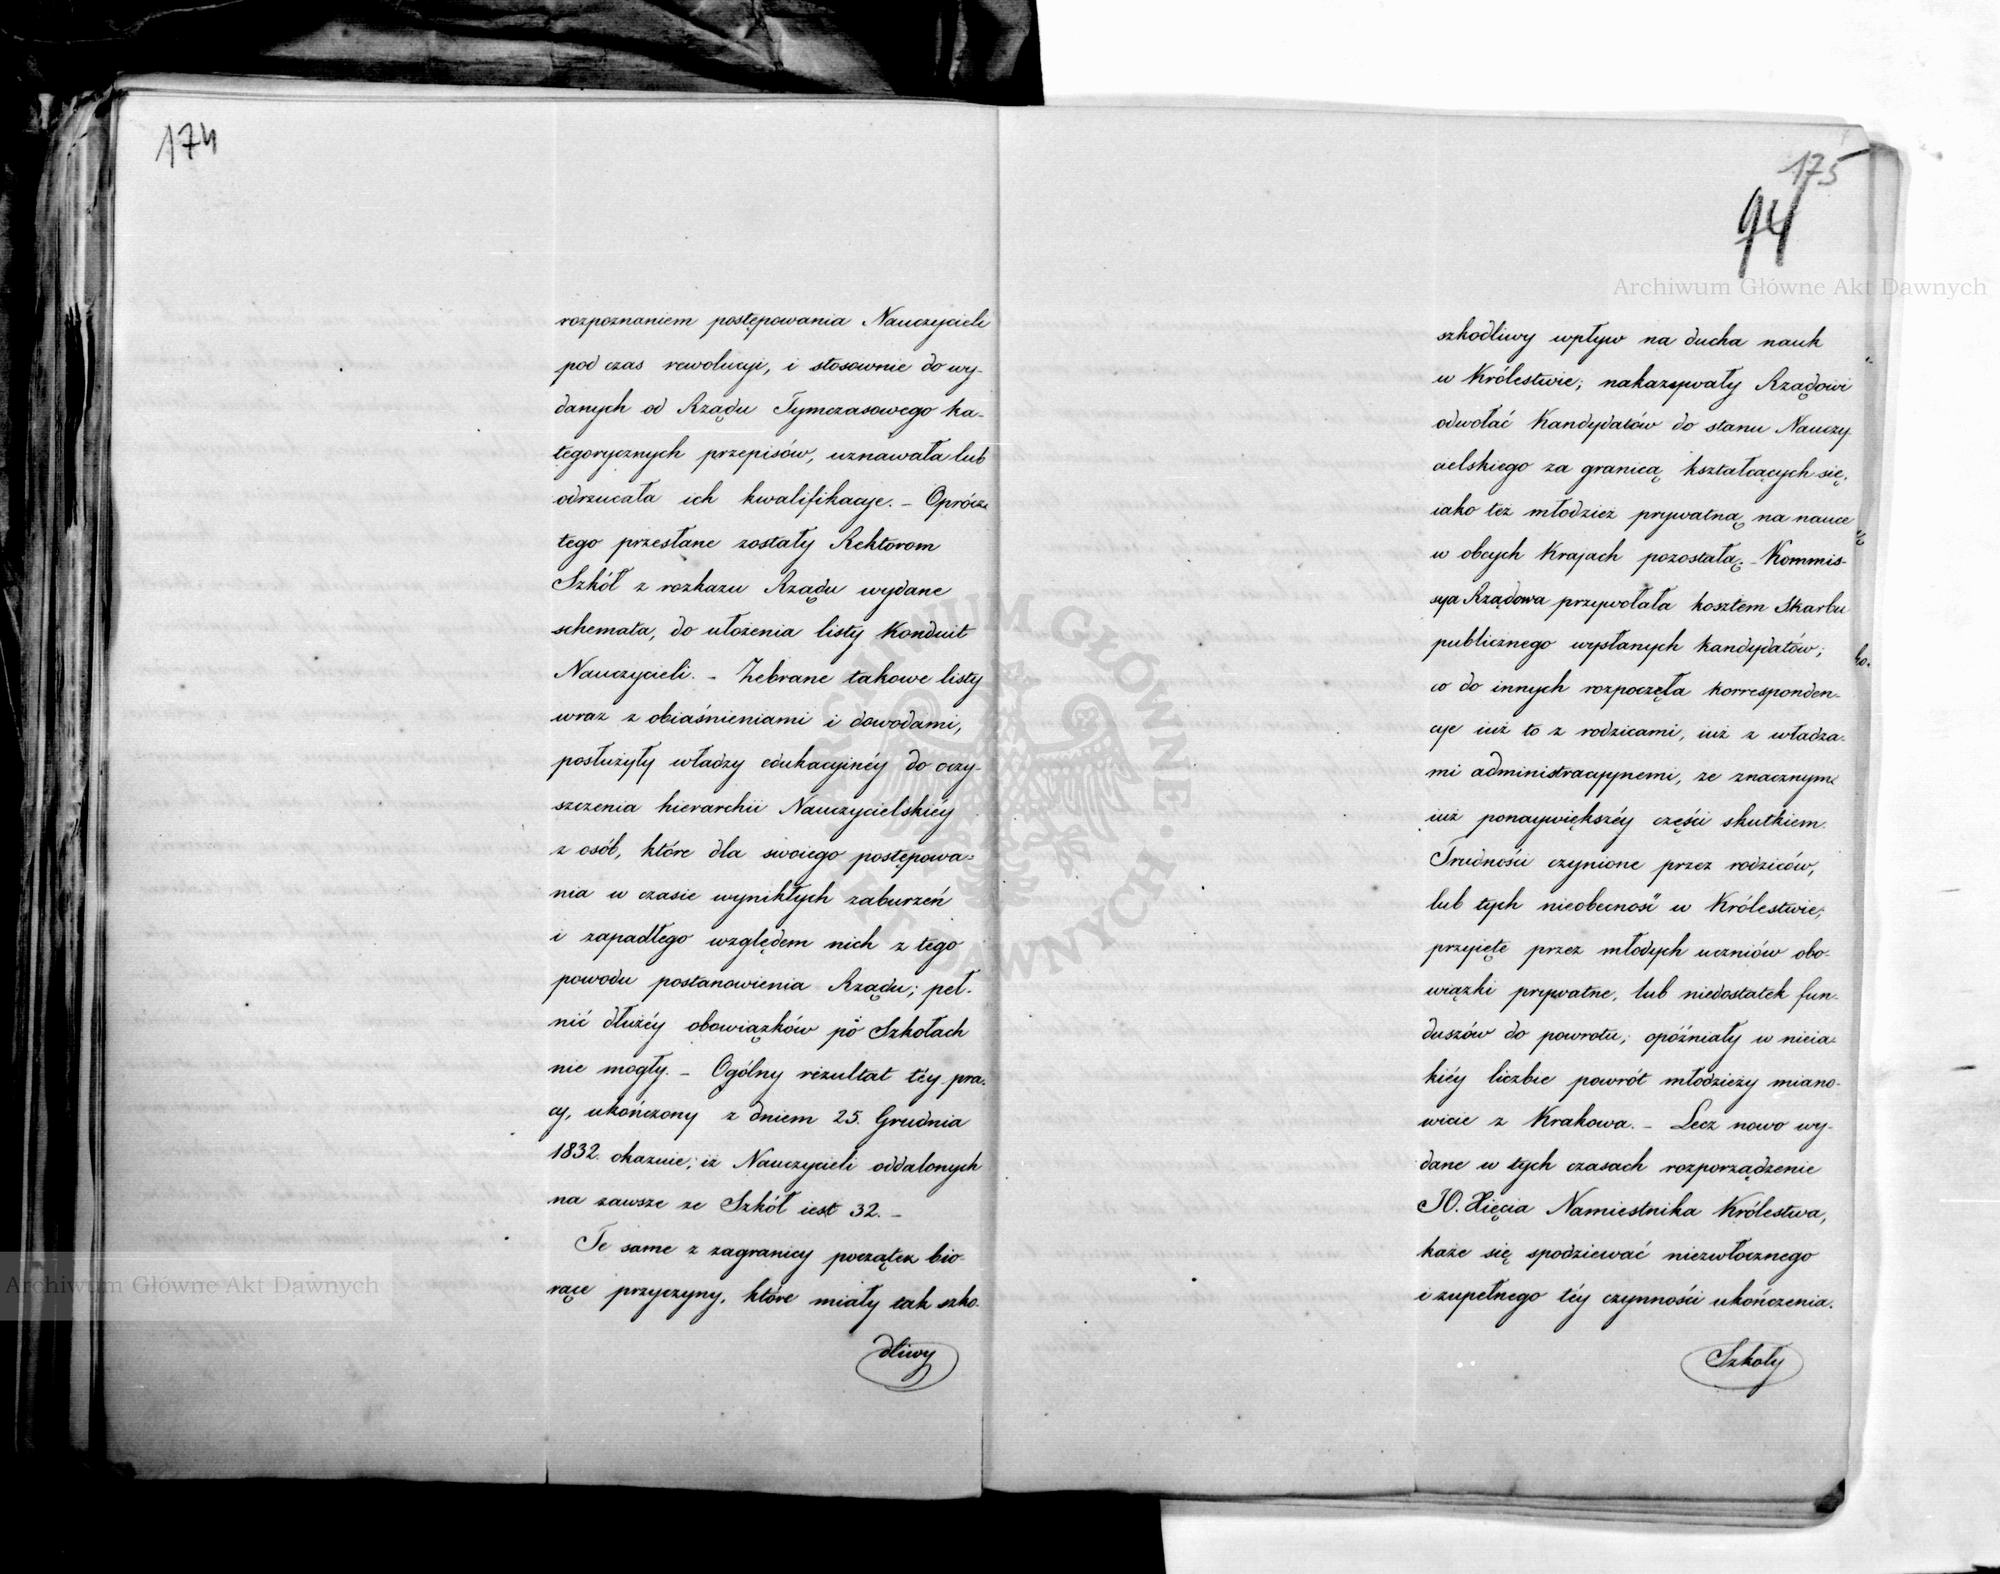 174
rozpoznaniem postępowania Nauczycieli
pod czas rewolucyi, i stosownie do wy-
danych od Rządu Tymczasowego ka-
tegorycznych przepisów, uznawała lub
odrzucała ich kwalifikacye. – Oprócz
tego przesłane zostały Rektorom
Szkół z rozkazu Rządu wydane
schemata, do ułożenia listy Konduit
Nauczycieli. – Zebrane takowe listy
wraz z obiaśnieniami i dowodami,
posłużyły władzy edukacyinéy do oczy-
szczenia hierarchii Nauczycielskiéy
z osób, które dla swoiego postępowa-
nia w czasie wynikłych zaburzeń
i zapadłego względem nich z tego
powodu postanowienia Rządu; peł-
nić dłużéy obowiązków po Szkołach
nie mogły. – Ogólny rezultat téy pra-
cy, ukończony z dniem 25. Grudnia
1832. okazuie; iż Nauczycieli oddalonych
na zawsze ze Szkół iest 32. –
Te same z zagranicy początek bio-
rące przyczyny, które miały tak szko-
dliwy
175
94
szkodliwy wpływ na ducha nauk
w Królestwie; nakazywały Rządowi
odwołać Kandydatów do stanu Nauczy-
cielskiego za granicą kształcących się,
iako też młodzież prywatną na nauce
w obcych Krajach pozostałą. – Kommis-
sya Rządowa przywołała kosztem Skarbu
publicznego wysłanych kandydatów;
co do innych rozpoczęła korresponden-
cye iuż to z rodzicami, iuż z władza-
mi administracyynemi, ze znacznym
iuż ponaywiększéy części skutkiem.
Trudności czynione przez rodziców,
lub tych nieobecność w Królestwie,
przyięte przez młodych uczniów obo-
wiązki prywatne, lub niedostatek fun-
duszów do powrotu; opóźniały w nieia-
kiéy liczbie powrót młodzieży miano-
wicie z Krakowa. – Lecz nowo wy-
dane w tych czasach rozporządzenie
JO. Xięcia Namiestnika Królestwa,
każe się spodziewać niezwłocznego
i zupełnego téy czynności ukończenia.
Szkoły
Archiwum Główne Akt Dawnych
Archiwum Główne Akt Dawnych
ARCHIWUM GŁÓWNE AKT DAWNYCH